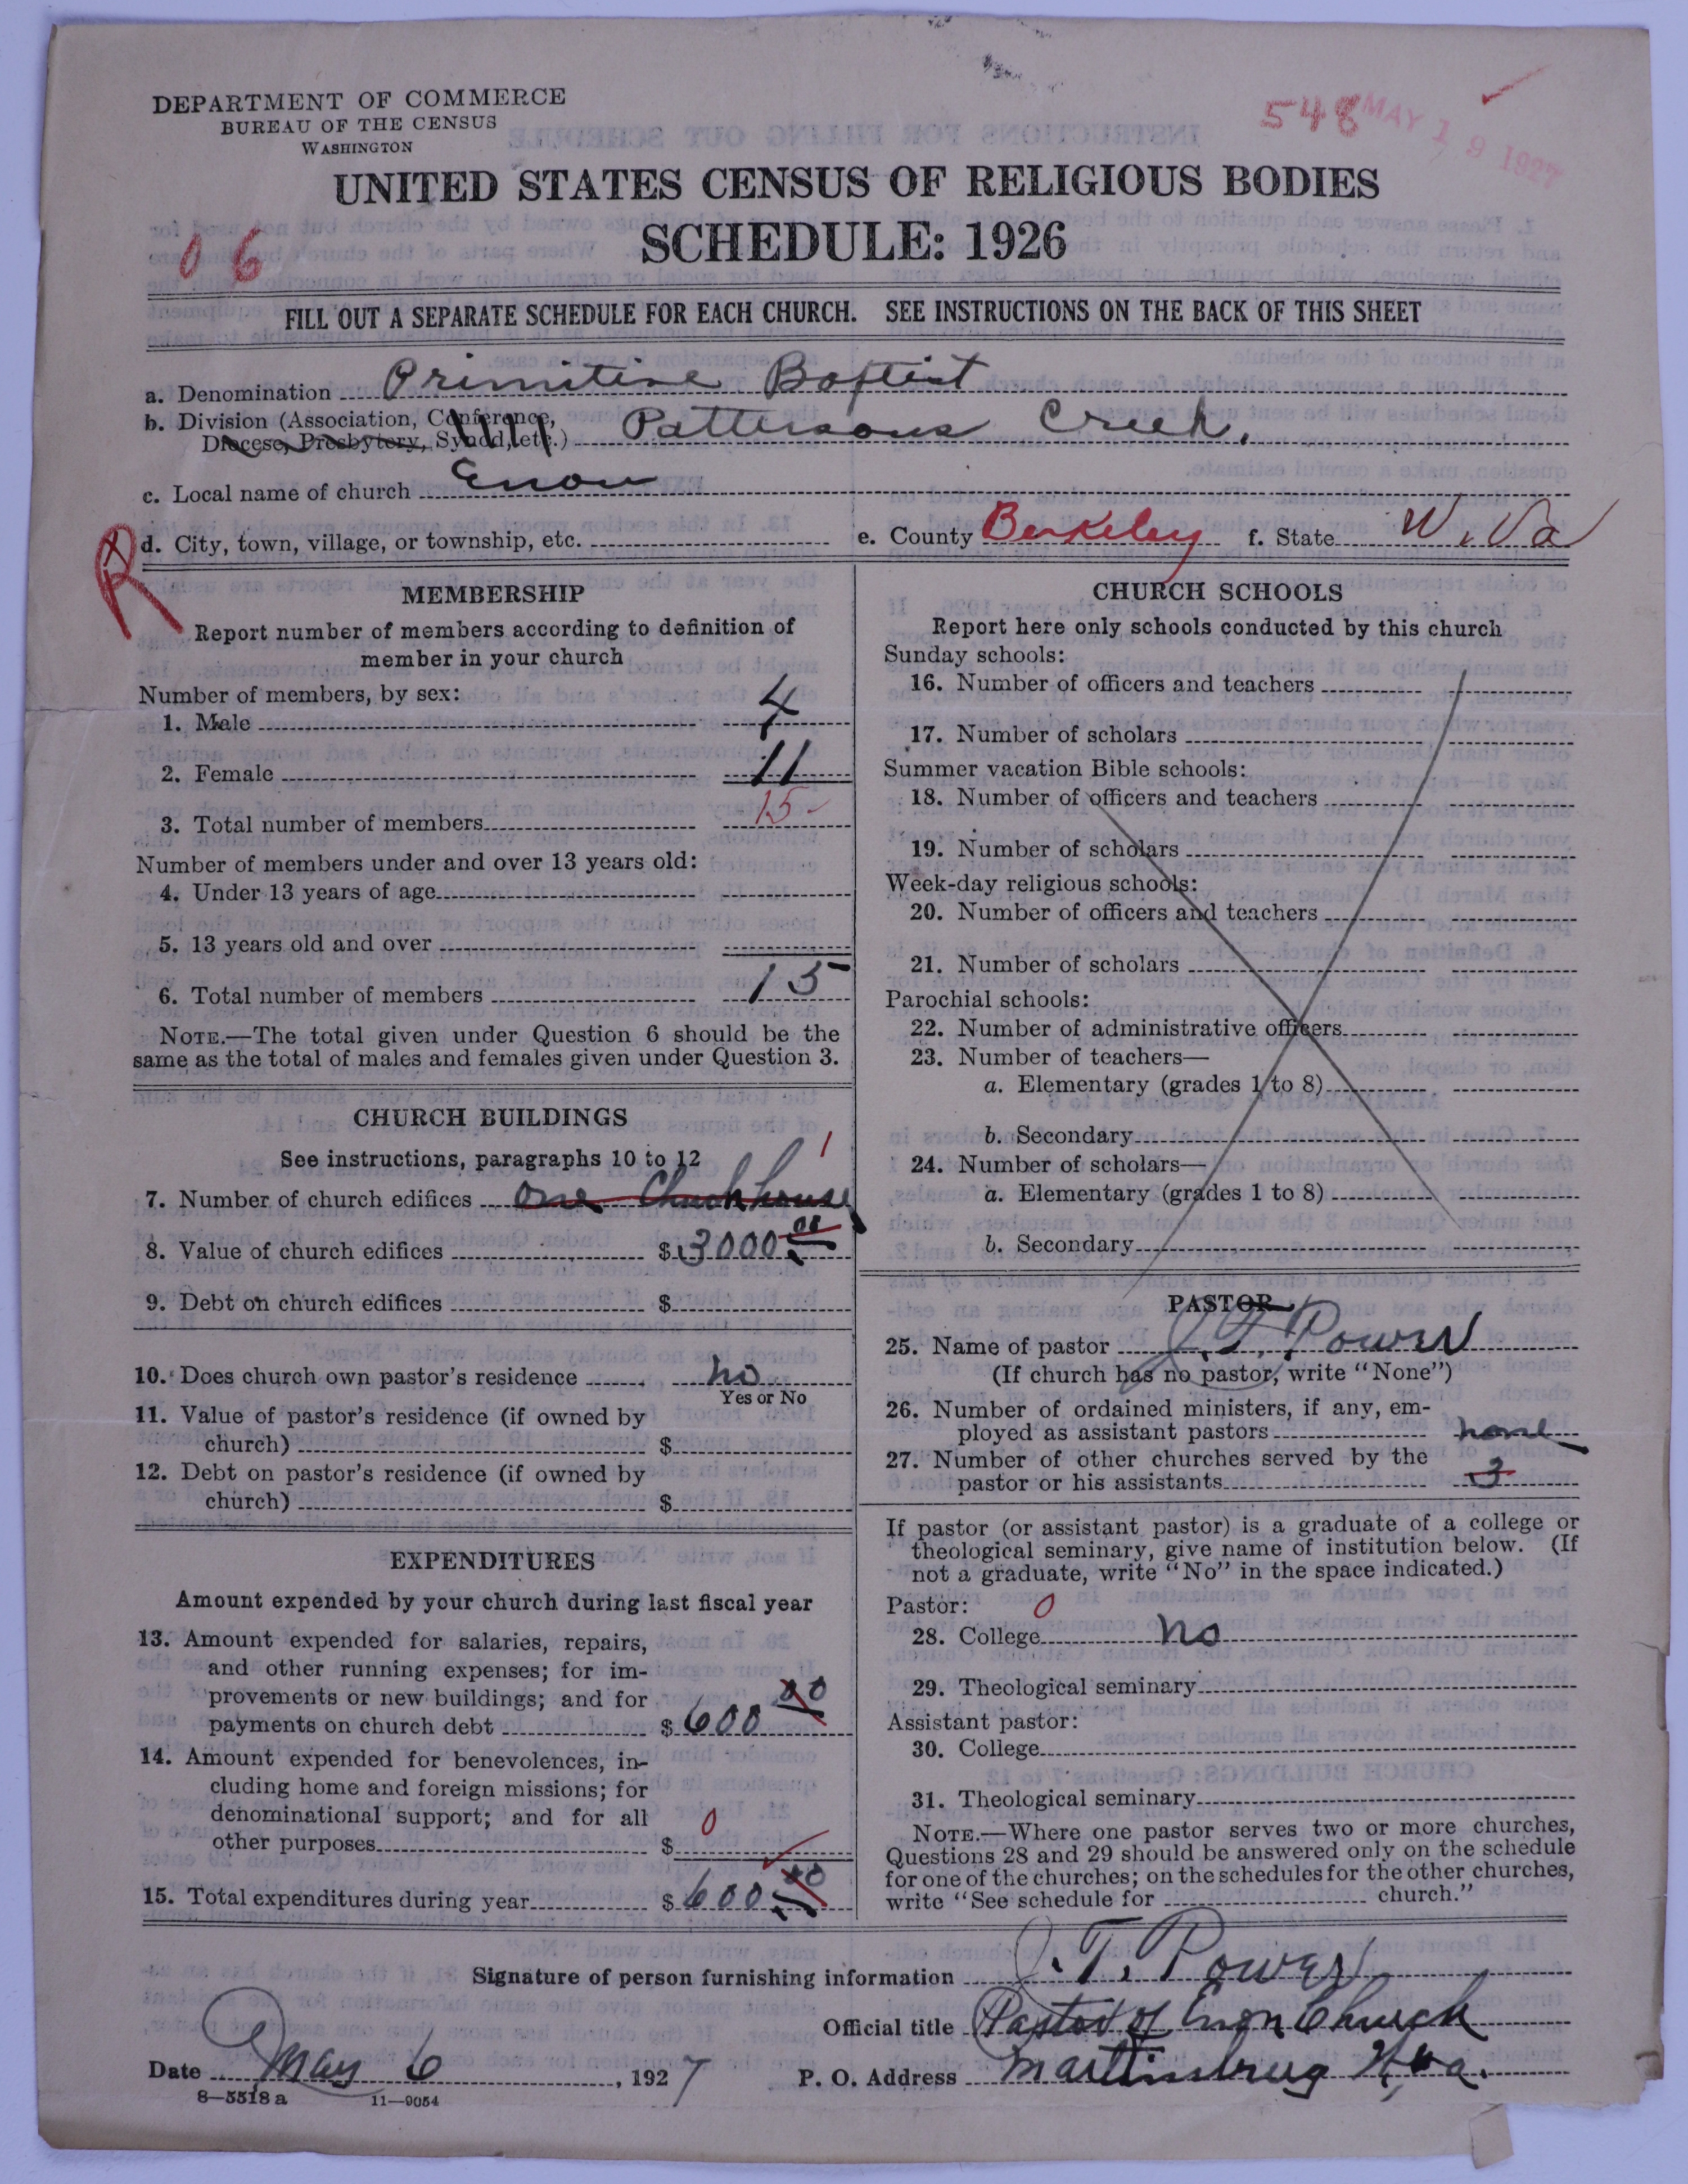 DEPARTMENT OF COMMERCE
BUREAU OF THE CENSUS
WASHINGTON
548
MAY 19 1927
UNITED STATES CENSUS OF RELIGIOUS BODIES
SCHEDULE: 1926
06
FILL OUT A SEPARATE SCHEDULE FOR EACH CHURCH. SEE INSTRUCTIONS ON THE BACK OF THIS SHEET
a. Denomination Primitive Baptist
b. Division (Association, Conference,
Diocese, Presbytery, Synod, etc.) Pattersons Creek.
c. Local name of church Enon
R d. City, town, village, or township, etc. e. County Berkeley f. State W. Va
MEMBERSHIP
Report number of members according to definition of
member in your church
Number of members, by sex:
1. Male 4
2. Female 11
3. Total number of members 15
Number of members under and over 13 years old:
4. Under 13 years of age
5. 13 years old and over
6. Total number of members 15
NOTE.—The total given under Question 6 should be the
same as the total of males and females given under Question 3.
CHURCH BUILDINGS
See instructions, paragraphs 10 to 12
1
7. Number of church edifices One Church house
8. Value of church edifices $ 3000 00
9. Debt on church edifices $
10. Does church own pastor's residence no
Yes or No
11. Value of pastor's residence (if owned by
church) $
12. Debt on pastor's residence (if owned by
church) $
EXPENDITURES
Amount expended by your church during last fiscal year
13. Amount expended for salaries, repairs,
and other running expenses; for im-
provements or new buildings; and for
payments on church debt $ 600 00
14. Amount expended for benevolences, in-
cluding home and foreign missions; for
denominational support; and for all
other purposes $ 0
15. Total expenditures during year $ 600 00
CHURCH SCHOOLS
Report here only schools conducted by this church
Sunday schools:
16. Number of officers and teachers
17. Number of scholars
Summer vacation Bible schools:
18. Number of officers and teachers
19. Number of scholars
Week-day religious schools:
20. Number of officers and teachers
21. Number of scholars
Parochial schools:
22. Number of administrative officers
23. Number of teachers—
a. Elementary (grades 1 to 8)
b. Secondary
24. Number of scholars—
a. Elementary (grades 1 to 8)
b. Secondary
PASTOR
25. Name of pastor J. T. Power
(If church has no pastor, write "None")
26. Number of ordained ministers, if any, em-
ployed as assistant pastors none
27. Number of other churches served by the
pastor or his assistants 3
If pastor (or assistant pastor) is a graduate of a college or
theological seminary, give name of institution below. (If
not a graduate, write "No" in the space indicated.)
Pastor: 0
28. College no
29. Theological seminary
Assistant pastor:
30. College
31. Theological seminary
NOTE.—Where one pastor serves two or more churches,
Questions 28 and 29 should be answered only on the schedule
for one of the churches; on the schedules for the other churches,
write "See schedule for church."
Signature of person furnishing information J. T. Power
Official title Pastor of Enon Church
Date May 6, 1927 P. O. Address Martinsburg W, Va.
8—5518 a 11—9054